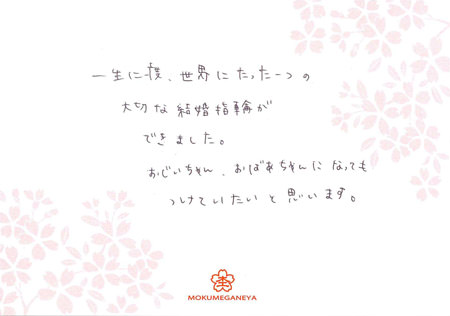 一生に一度、世界にたった一つの
大切な結婚指輪が
できました。
おじいちゃん、おばあちゃんになっても
つけていたいと思います。
MOKUMEGANEYA